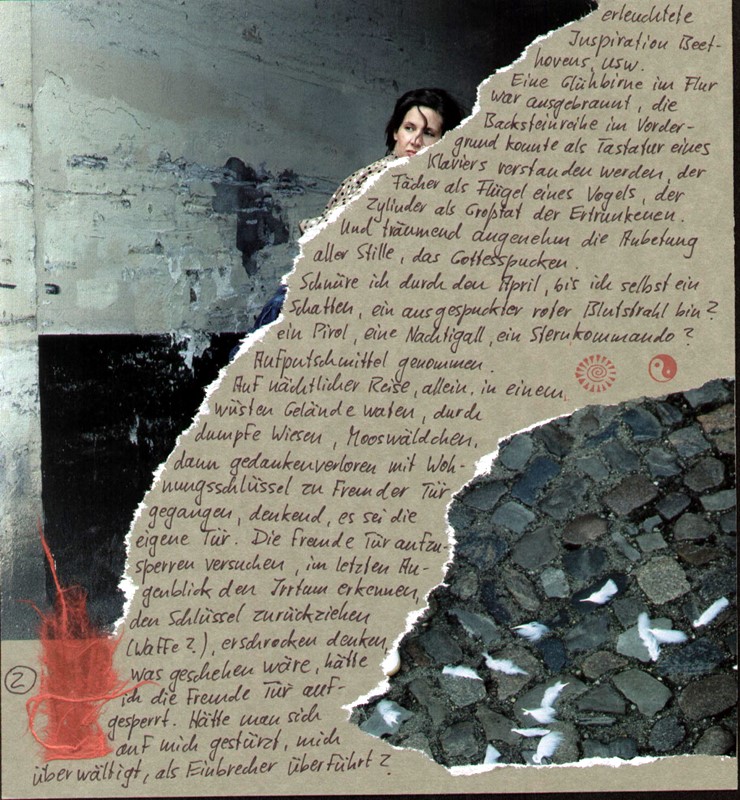 erleuchtete
Inspiration Beet-
hovens, usw.
Eine Glühbirne im Flur
war ausgebrannt, die
Backsteinreihe im Vorder-
grund konnte als Tastatur eines
Klaviers verstanden werden, der
Fächer als Flügel eines Vogels, der
Zylinder als Großtat der Ertrunkenen.
Und träumend angenehm die Anbetung
aller Stille, das Gottesspucken.
Schnüre ich durch den April, bis ich selbst ein
Schatten, ein ausgespuckter roter Blutstrahl bin?
ein Pirol, eine Nachtigall, ein Sternkommando?
Aufputschmittel genommen.
Auf nächtlicher Reise, allein, in einem
wüsten Gelände waten, durch
dumpfe Wiesen, Mooswäldchen,
dann gedankenverloren mit Woh-
nungsschlüssel zu Fremder Tür
gegangen, denkend, es sei die
eigene Tür. Die Fremde Tür aufzu-
sperren versuchen, im letzten Au-
genblick den Irrtum erkennen,
den Schlüssel zurückziehen
(Waffe?), erschrocken denken,
was geschehen wäre, hätte
ich die Fremde Tür auf-
gesperrt. Hätte man sich
auf mich gestürzt, mich
überwältigt, als Einbrecher überführt?
2